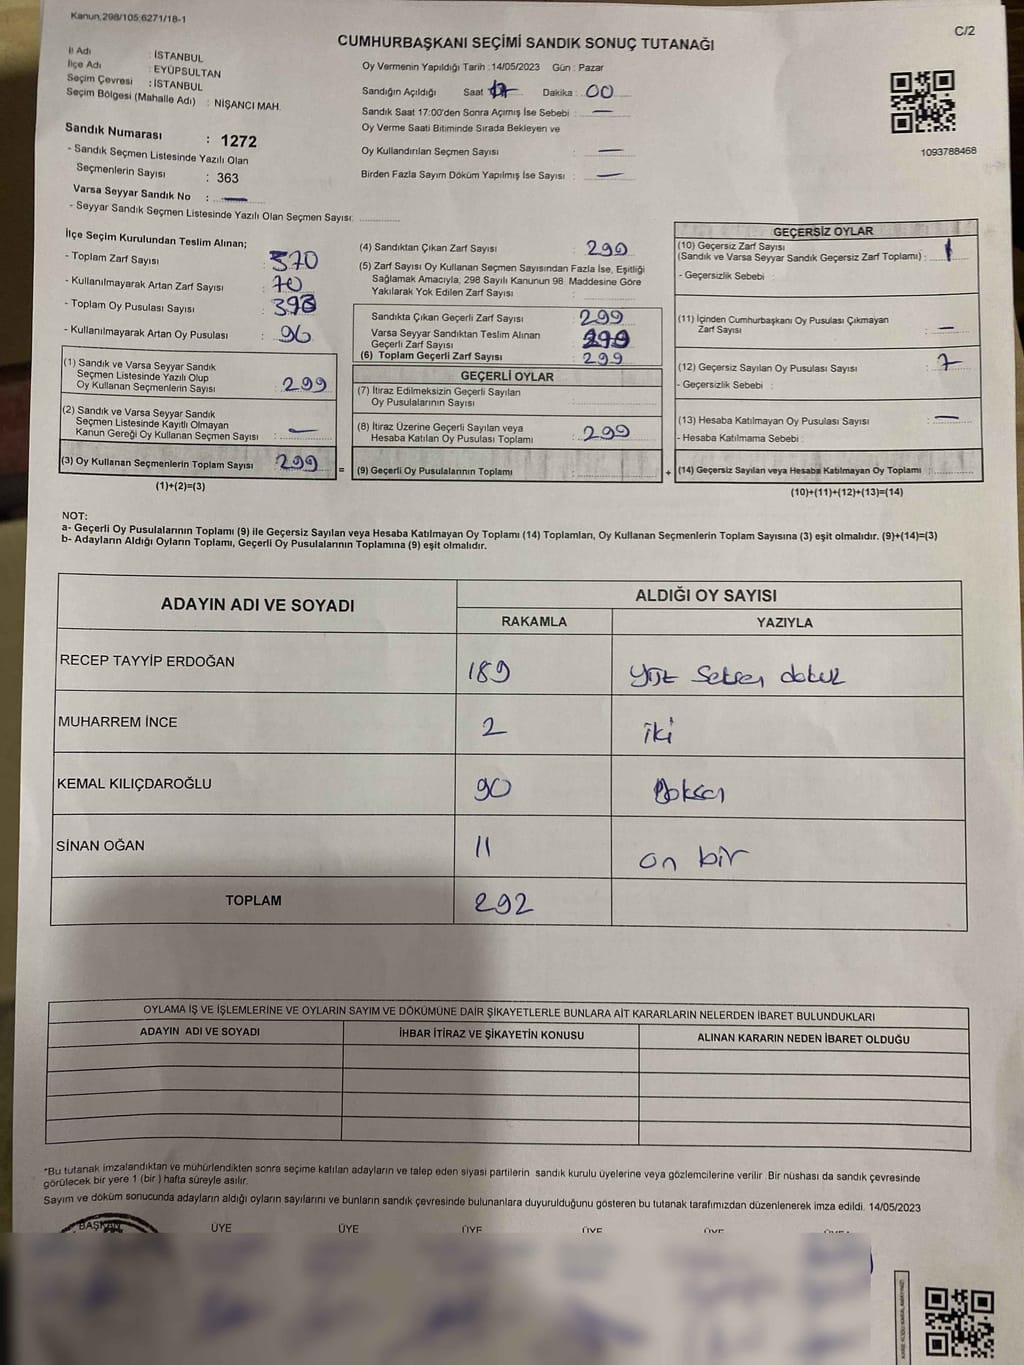 Kanun,298/105;6271/18-1
C/2
CUMHURBAŞKANI SEÇİMİ SANDIK SONUÇ TUTANAĞI
İl Adı : İSTANBUL
İlçe Adı : EYÜPSULTAN
Seçim Çevresi : İSTANBUL
Seçim Bölgesi (Mahalle Adı) : NİŞANCI MAH.
Sandık Numarası : 1272
- Sandık Seçmen Listesinde Yazılı Olan
Seçmenlerin Sayısı : 363
Varsa Seyyar Sandık No : —
- Seyyar Sandık Seçmen Listesinde Yazılı Olan Seçmen Sayısı:
Oy Vermenin Yapıldığı Tarih :14/05/2023 Gün : Pazar
Sandığın Açıldığı Saat : 17 Dakika : 00
Sandık Saat 17:00'den Sonra Açımış İse Sebebi : —
Oy Verme Saati Bitiminde Sırada Bekleyen ve
Oy Kullandırılan Seçmen Sayısı : —
Birden Fazla Sayım Döküm Yapılmış İse Sayısı : —
1093788468
İlçe Seçim Kurulundan Teslim Alınan;
- Toplam Zarf Sayısı : 370
- Kullanılmayarak Artan Zarf Sayısı : 70
- Toplam Oy Pusulası Sayısı : 393
- Kullanılmayarak Artan Oy Pusulası : 96
(1) Sandık ve Varsa Seyyar Sandık
Seçmen Listesinde Yazılı Olup
Oy Kullanan Seçmenlerin Sayısı : 299
(2) Sandık ve Varsa Seyyar Sandık
Seçmen Listesinde Kayıtlı Olmayan
Kanun Gereği Oy Kullanan Seçmen Sayısı : —
(3) Oy Kullanan Seçmenlerin Toplam Sayısı : 299
(1)+(2)=(3)
(4) Sandıktan Çıkan Zarf Sayısı : 299
(5) Zarf Sayısı Oy Kullanan Seçmen Sayısından Fazla İse, Eşitliği
Sağlamak Amacıyla, 298 Sayılı Kanunun 98. Maddesine Göre
Yakılarak Yok Edilen Zarf Sayısı :
Sandıkta Çıkan Geçerli Zarf Sayısı : 299
Varsa Seyyar Sandıktan Teslim Alınan
Geçerli Zarf Sayısı : 299
(6) Toplam Geçerli Zarf Sayısı : 299
GEÇERLİ OYLAR
(7) İtiraz Edilmeksizin Geçerli Sayılan
Oy Pusulalarının Sayısı :
(8) İtiraz Üzerine Geçerli Sayılan veya
Hesaba Katılan Oy Pusulası Toplamı : 299
= (9) Geçerli Oy Pusulalarının Toplamı :
GEÇERSİZ OYLAR
(10) Geçersiz Zarf Sayısı
(Sandık ve Varsa Seyyar Sandık Geçersiz Zarf Toplamı) : 1
- Geçersizlik Sebebi :
(11) İçinden Cumhurbaşkanı Oy Pusulası Çıkmayan
Zarf Sayısı : —
(12) Geçersiz Sayılan Oy Pusulası Sayısı : 7
- Geçersizlik Sebebi :
(13) Hesaba Katılmayan Oy Pusulası Sayısı : —
- Hesaba Katılmama Sebebi :
+ (14) Geçersiz Sayılan veya Hesaba Katılmayan Oy Toplamı :
(10)+(11)+(12)+(13)=(14)
NOT:
a- Geçerli Oy Pusulalarının Toplamı (9) ile Geçersiz Sayılan veya Hesaba Katılmayan Oy Toplamı (14) Toplamları, Oy Kullanan Seçmenlerin Toplam Sayısına (3) eşit olmalıdır. (9)+(14)=(3)
b- Adayların Aldığı Oyların Toplamı, Geçerli Oy Pusulalarının Toplamına (9) eşit olmalıdır.
ADAYIN ADI VE SOYADI
ALDIĞI OY SAYISI
RAKAMLA YAZIYLA
RECEP TAYYİP ERDOĞAN 189 yüz seksen dokuz
MUHARREM İNCE 2 iki
KEMAL KILIÇDAROĞLU 90 Doksan
SİNAN OĞAN 11 on bir
TOPLAM 292
OYLAMA İŞ VE İŞLEMLERİNE VE OYLARIN SAYIM VE DÖKÜMÜNE DAİR ŞİKAYETLERLE BUNLARA AİT KARARLARIN NELERDEN İBARET BULUNDUKLARI
ADAYIN ADI VE SOYADI İHBAR İTİRAZ VE ŞİKAYETİN KONUSU ALINAN KARARIN NEDEN İBARET OLDUĞU
*Bu tutanak imzalandıktan ve mühürlendikten sonra seçime katılan adayların ve talep eden siyasi partilerin sandık kurulu üyelerine veya gözlemcilerine verilir. Bir nüshası da sandık çevresinde
görülecek bir yere 1 (bir) hafta süreyle asılır.
Sayım ve döküm sonucunda adayların aldığı oyların sayılarını ve bunların sandık çevresinde bulunanlara duyurulduğunu gösteren bu tutanak tarafımızdan düzenlenerek imza edildi. 14/05/2023
BAŞKAN ÜYE ÜYE ÜYE ÜYE ÜYE ÜYE